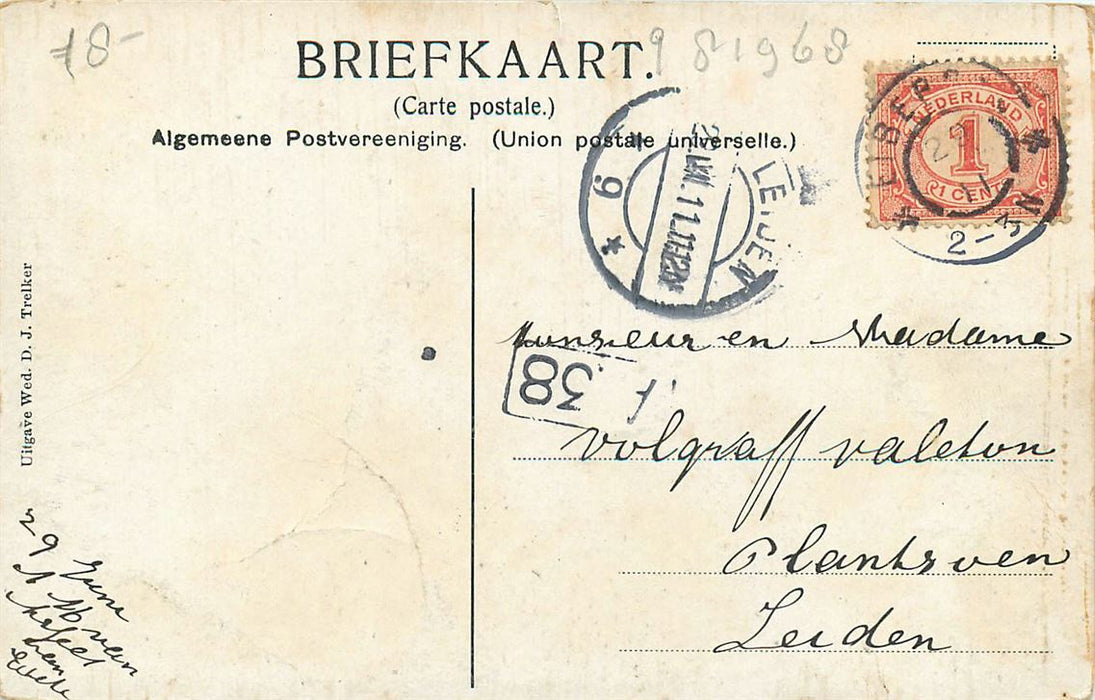 18-
BRIEFKAART.
981968
(Carte postale.)
Algemeene Postvereeniging. (Union postale universelle.)
NEDERLAND
1
1 CENT
EIBER
2-3 N
LEIDEN
* 6 *
JUN.11.11-12
Uitgave Wed. D. J. Trelker
Monsieur en Madame
38
Volgraff valeton
Plantsven
Leiden
29 Juni
van